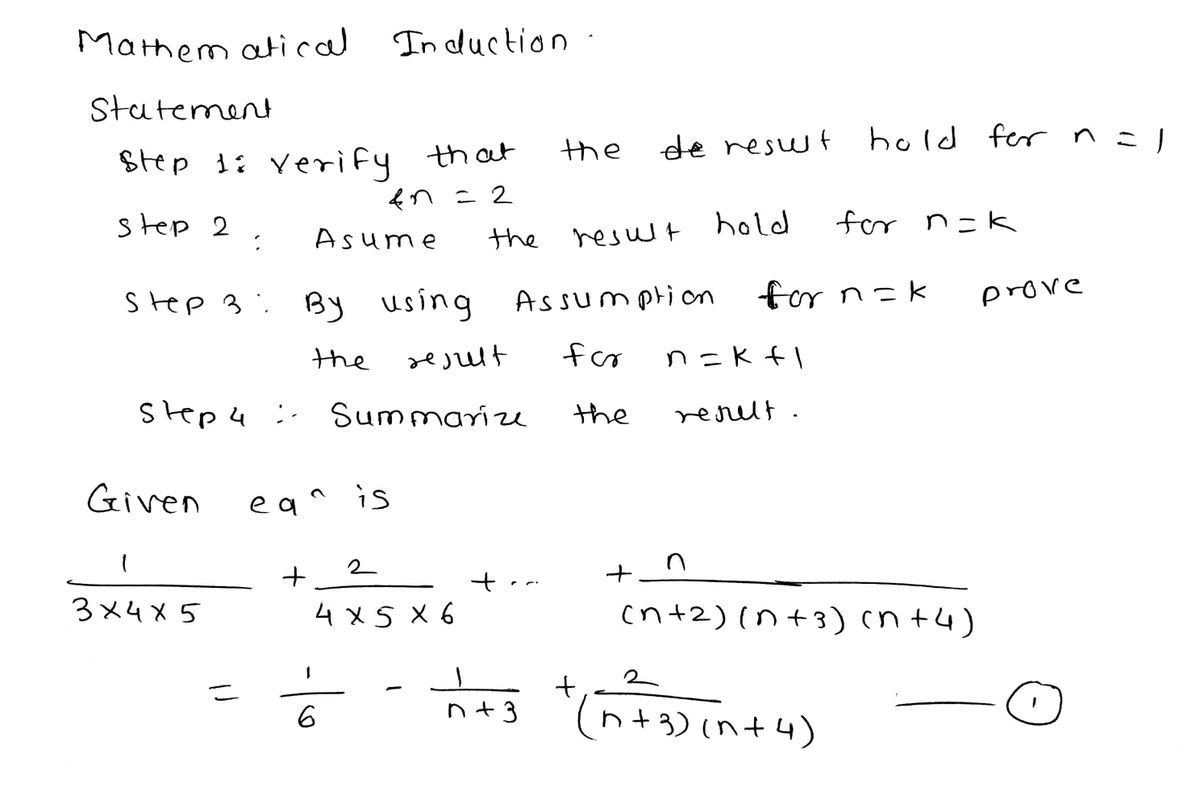 Mathematical Induction.
Statement
Step 1: Verify that the de result hold for n = 1
& n = 2
Step 2 : Asume the result hold for n = k
Step 3 : By using Assumption for n = k prove
the result for n = k + 1
Step 4 :- Summarize the result.
Given eqn is
1 / (3 × 4 × 5) + 2 / (4 × 5 × 6) + ... + n / ((n+2) (n+3) (n+4))
= 1/6 - 1/(n+3) + 2/((n+3) (n+4)) — ①